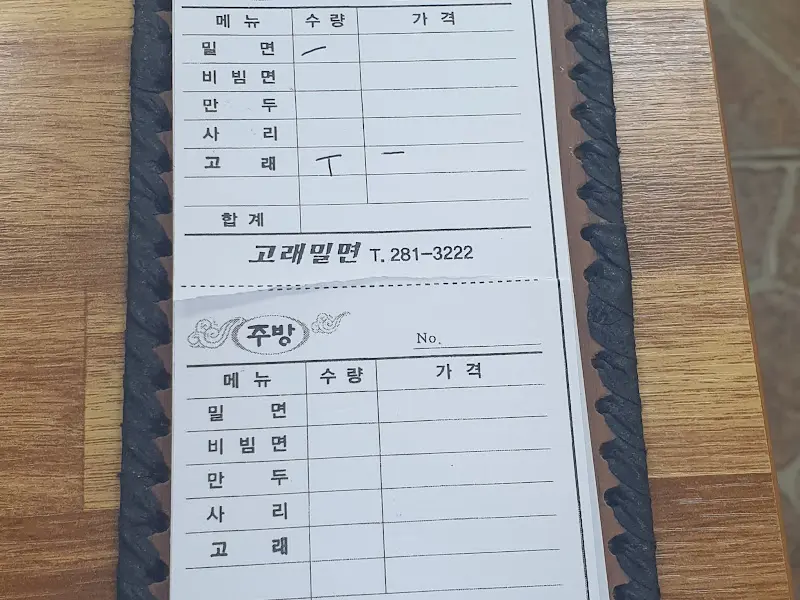 메 뉴 수 량 가 격
밀 면 一
비 빔 면
만 두
사 리
고 래 T 一
합 계
고래밀면 T. 281-3222
주방 No.
메 뉴 수 량 가 격
밀 면
비 빔 면
만 두
사 리
고 래